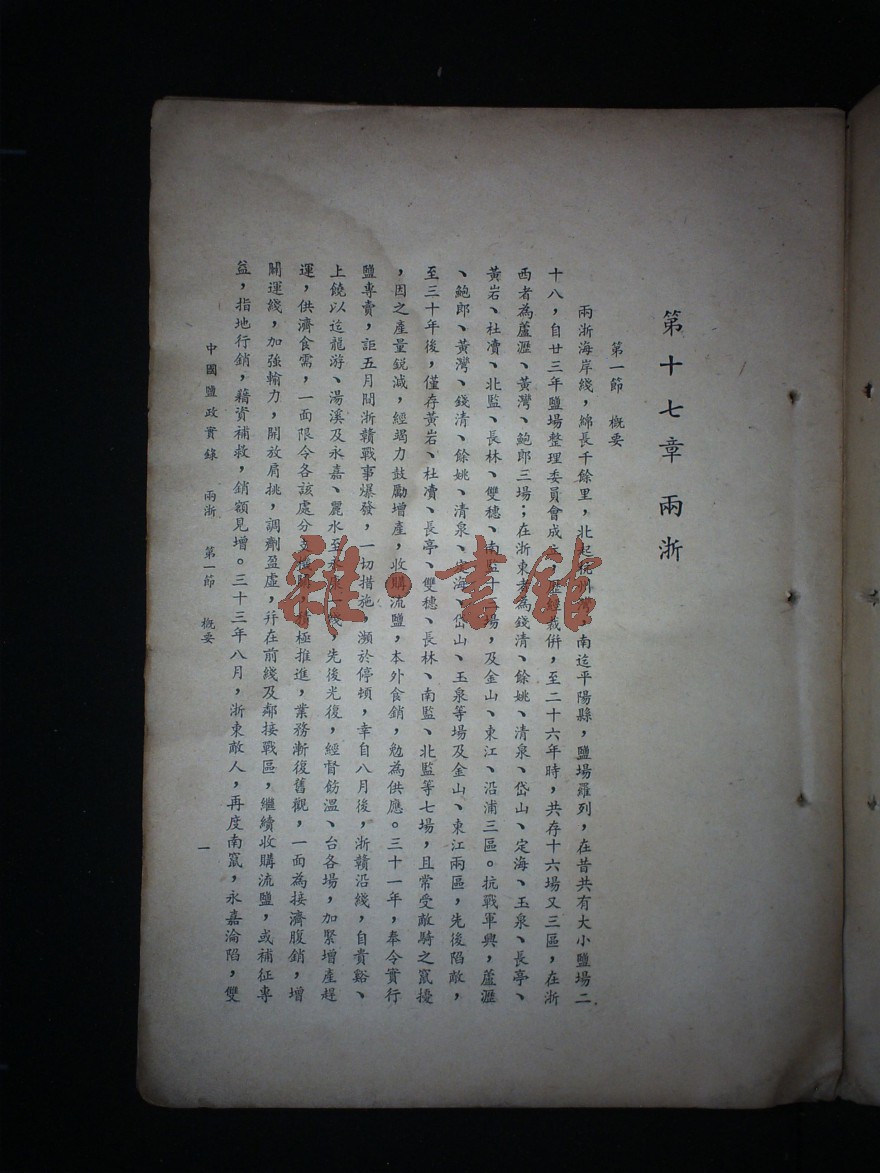 第十七章 兩浙
第一節 概要
兩浙海岸綫，綿長千餘里，北起杭州灣，南迄平陽縣，鹽場羅列，在昔共有大小鹽場二
十八，自廿三年鹽場整理委員會成立，歷經裁併，至二十六年時，共存十六場又三區，在浙
西者為蘆瀝、黃灣、鮑郎三場；在浙東者為錢清、餘姚、清泉、岱山、定海、玉泉、長亭、
黃岩、杜凟、北監、長林、雙穗、南監十三場，及金山、東江、沿浦三區。抗戰軍興，蘆瀝
、鮑郎、黃灣、錢清、餘姚、清泉、定海、岱山、玉泉等場及金山、東江兩區，先後陷敵，
至三十年後，僅存黃岩、杜凟、長亭、雙穗、長林、南監、北監等七場，且常受敵騎之竄擾
，因之產量銳減，經竭力鼓勵增產，收購流鹽，本外食銷，勉為供應。三十一年，奉令實行
鹽專賣，詎五月間浙贛戰事爆發，一切措施，瀕於停頓，幸自八月後，浙贛沿綫，自貴谿、
上饒以迄龍游、湯溪及永嘉、麗水至永康一綫，先後光復，經督飭溫、台各場，加緊增產趕
運，供濟食需，一面限令各該處分支機關，積極推進，業務漸復舊觀，一面為接濟腹銷，增
闢運綫，加強輸力，開放肩挑，調劑盈虛，幷在前綫及鄰接戰區，繼續收購流鹽，或補征專
益，指地行銷，藉資補救，銷額見增。三十三年八月，浙東敵人，再度南竄，永嘉淪陷，雙
中國鹽政實錄 兩浙 第一節 概要 一
雜·書館